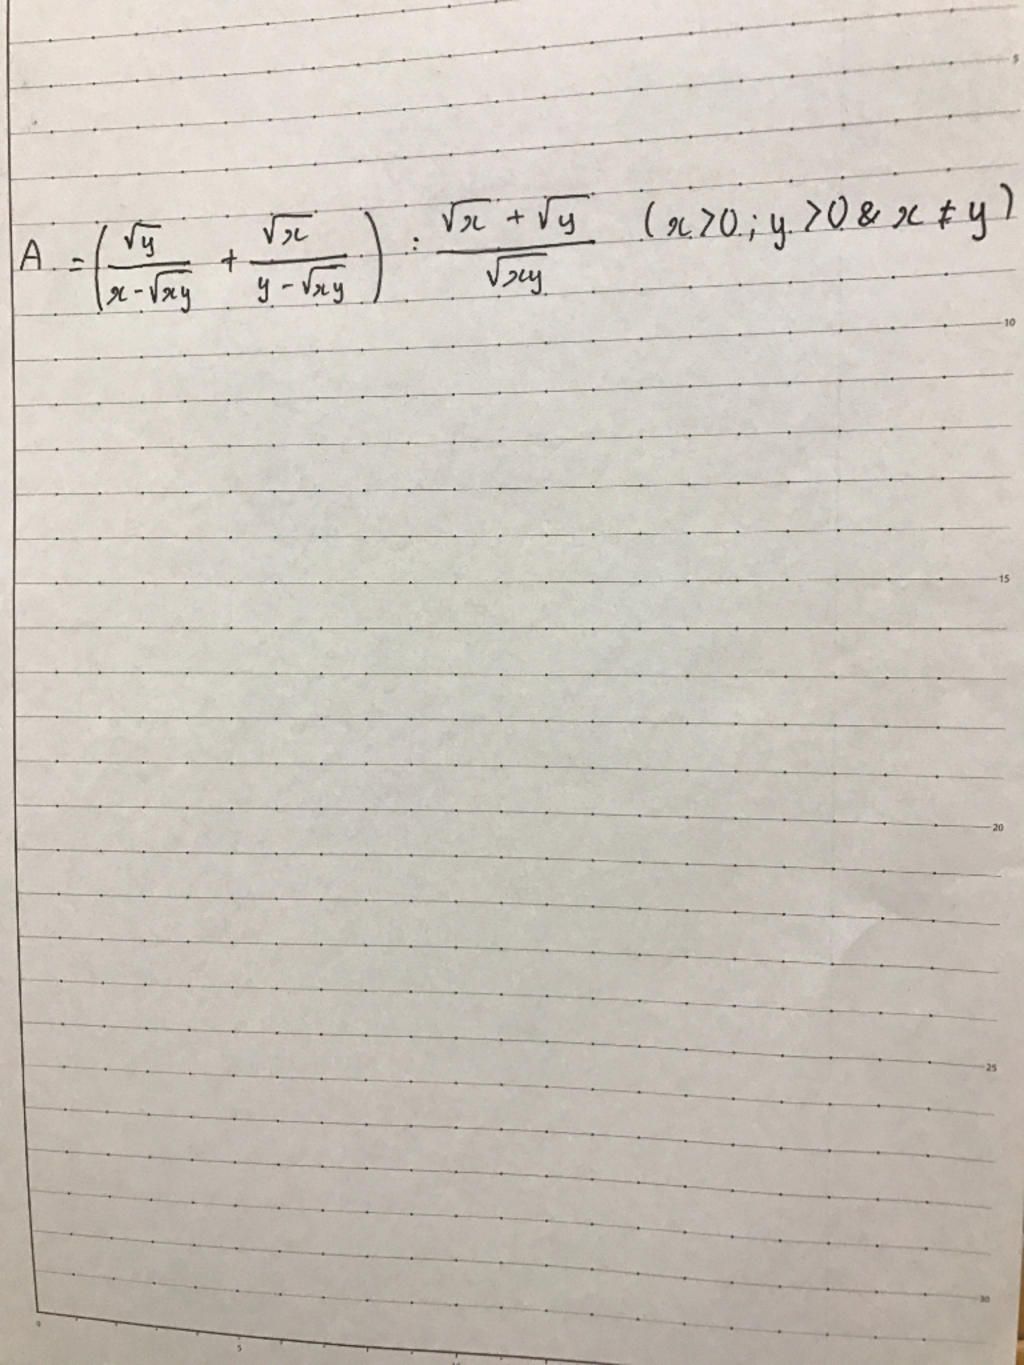 A = (√y/(x-√xy) + √x/(y-√xy)) : (√x + √y)/√xy (x>0; y>0 & x ≠ y)
5
10
15
20
25
30
0
5